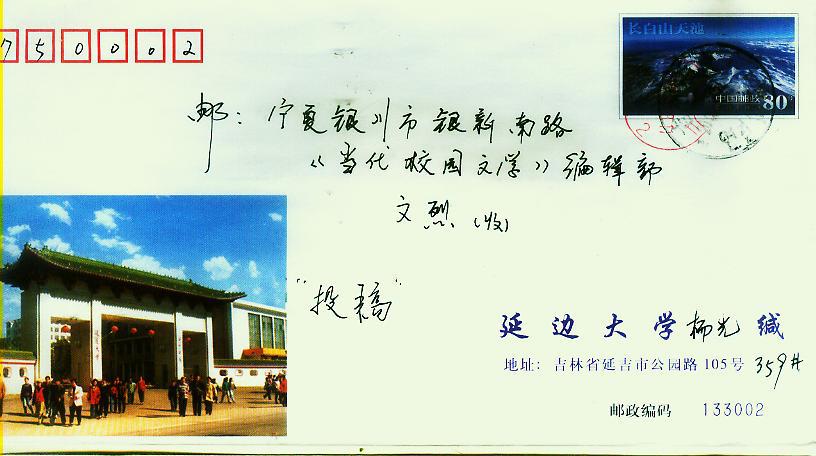 750002
长白山天池
中国邮政 80分
邮：宁夏银川市银新南路
《当代校园文学》编辑部
文烈（收）
"投稿"
延边大学 杨光 缄
地址：吉林省延吉市公园路105号 359#
邮政编码 133002